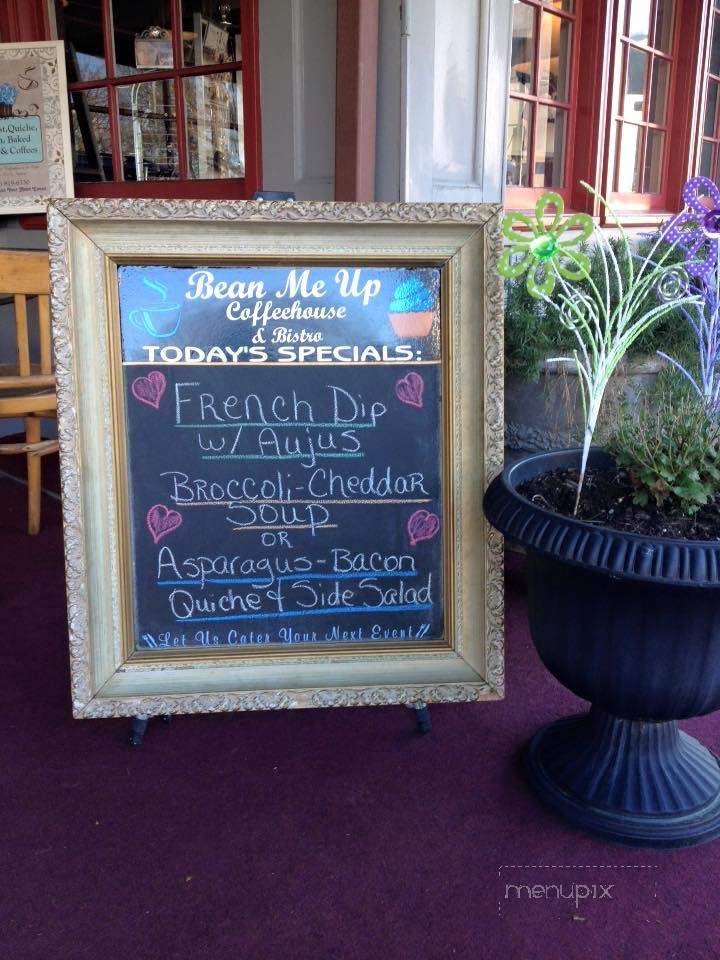 st, Quiche,
, Baked
& Coffees
Bean Me Up
Coffeehouse
& Bistro
TODAY'S SPECIALS:
French Dip
w/ Aujus
Broccoli-Cheddar
Soup
or
Asparagus-Bacon
Quiche & Side Salad
Let Us Cater Your Next Event
menupix